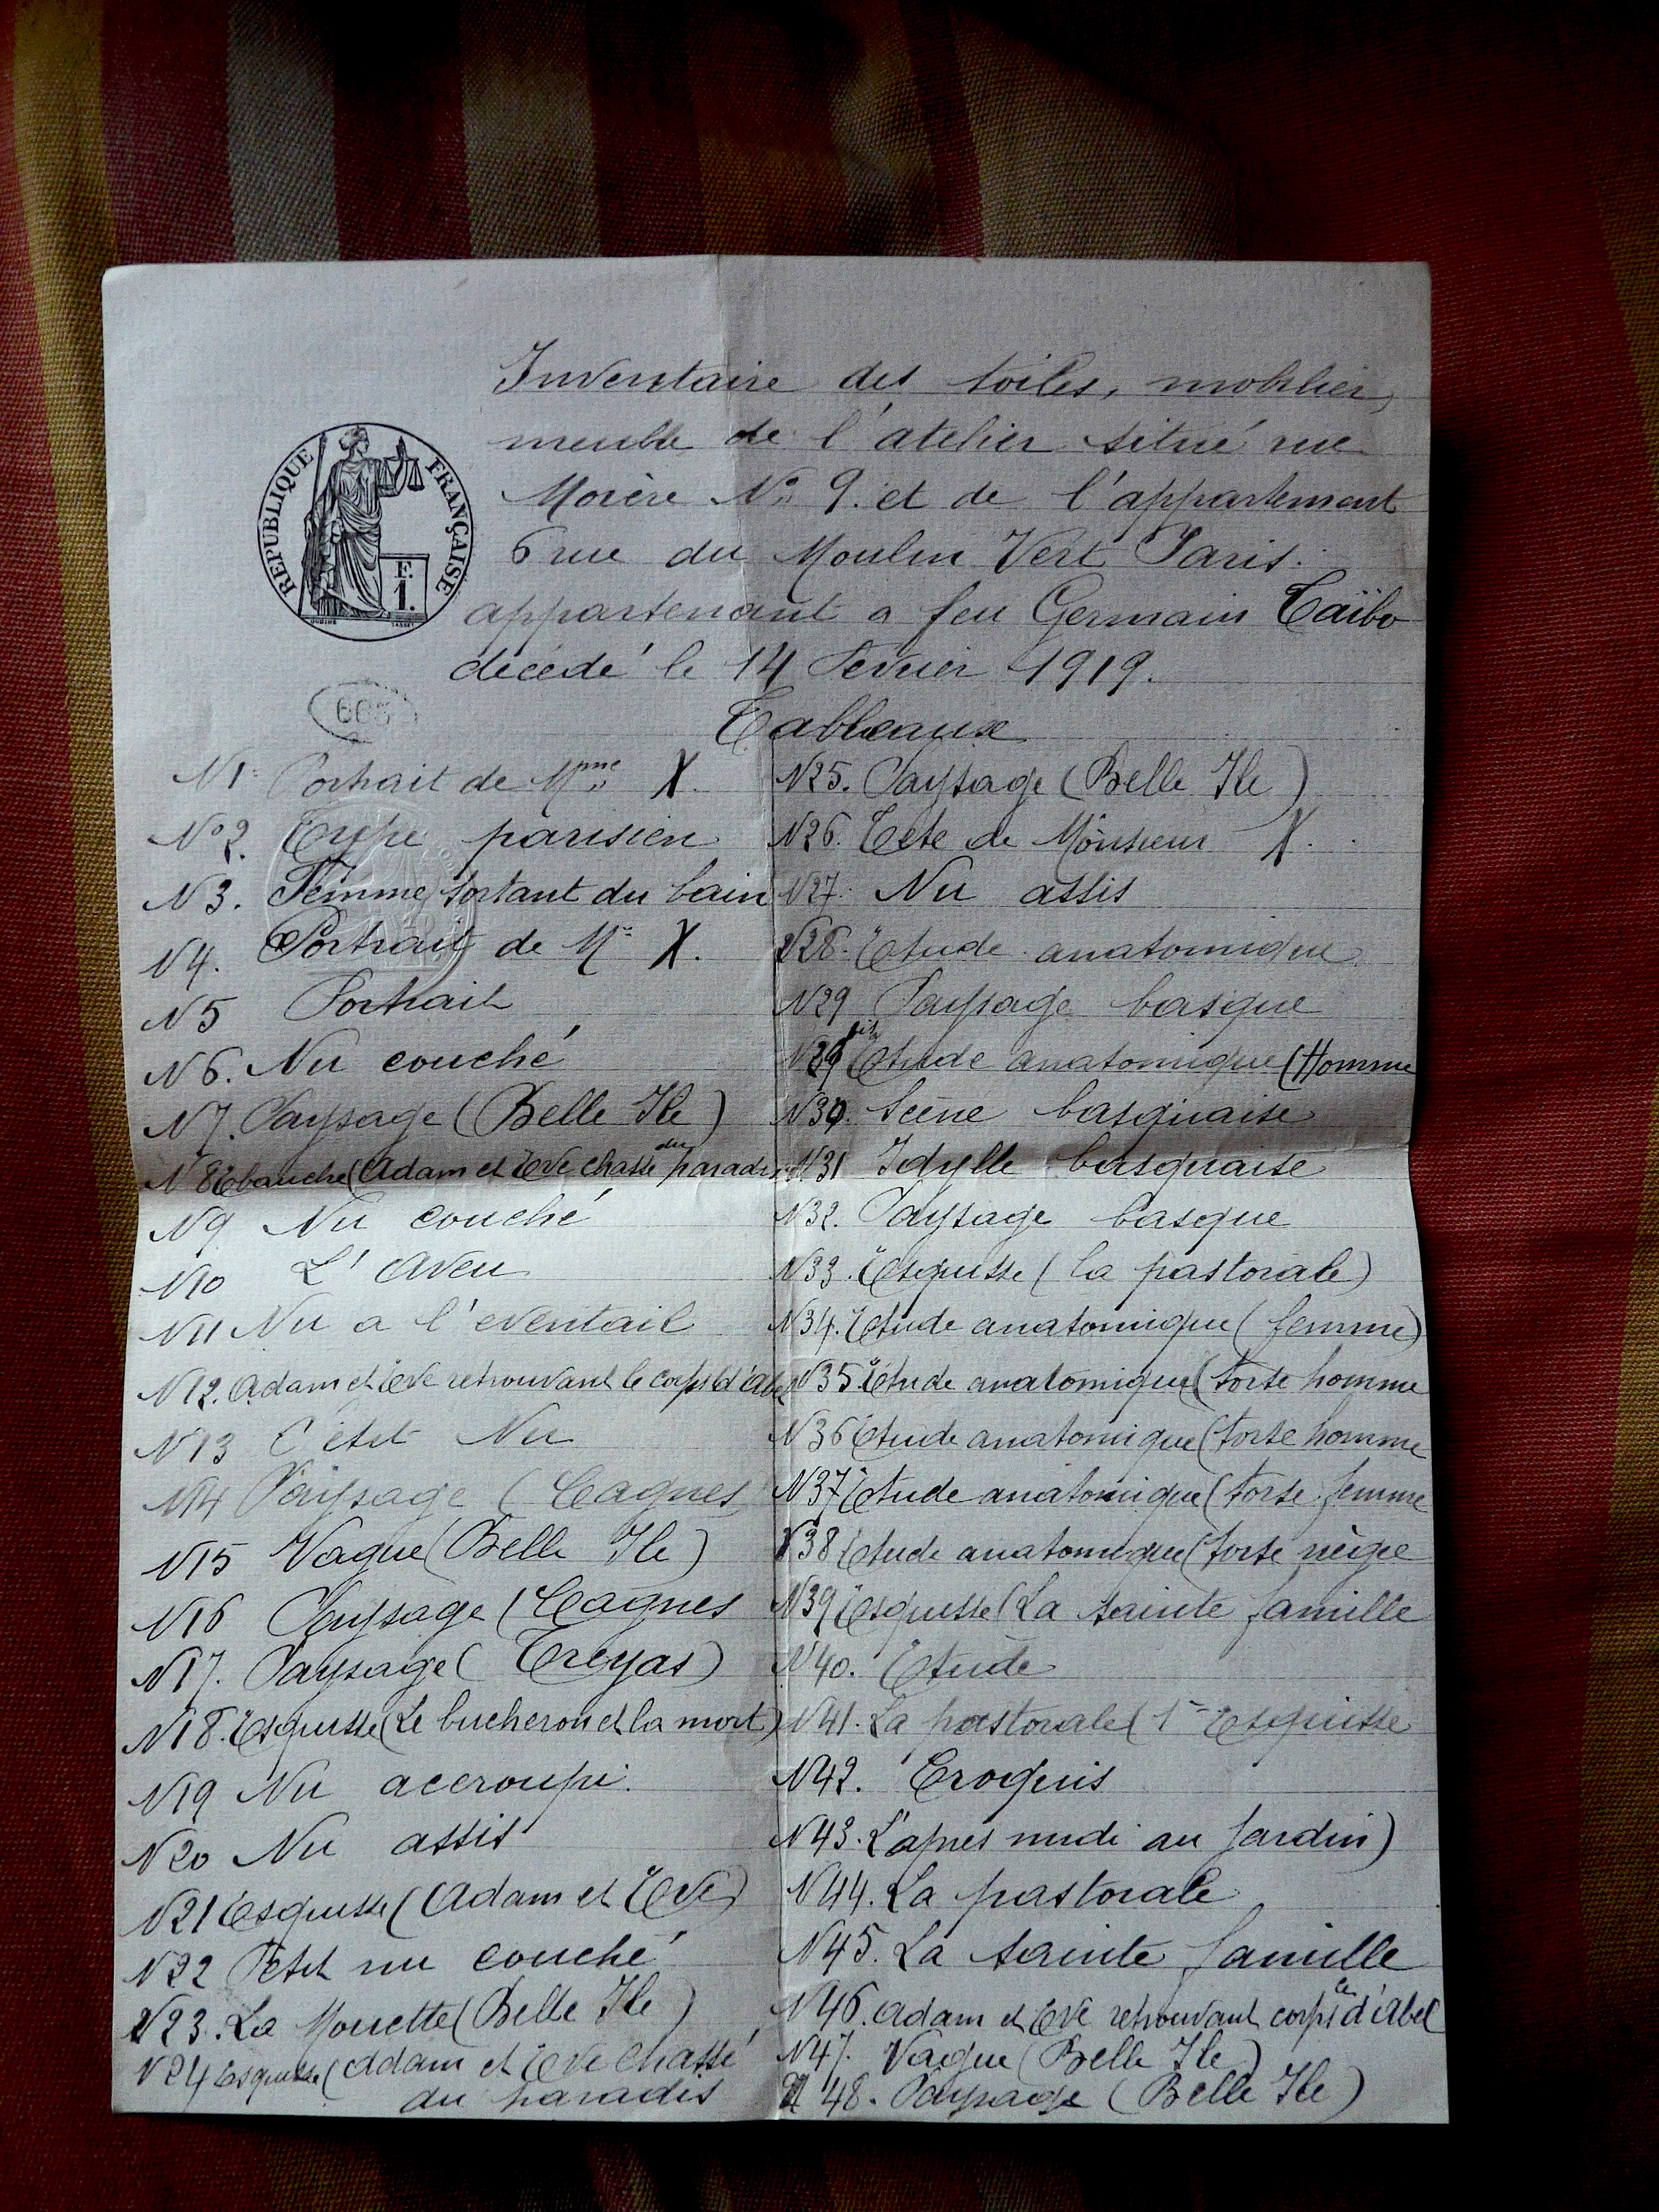 Inventaire des toiles, mobilier,
meuble de l'atelier situé rue
Morère No 9. et de l'appartement
6 rue du Moulin Vert Paris.
appartenant a feu Germain Taïbo
décédé le 14 Fevrier 1919.
REPUBLIQUE FRANÇAISE
F.
1.
Tableaux
N1. Portrait de Mme X.
No 2. Type parisien
N3. Femme sortant du bain
N4. Portrait de Mr X.
N5 Portrait
N6. Nu couché
N7. Paysage (Belle Ile)
N8 Ebauche (Adam et Eve chassé du paradis
N9 Nu couché
N10 L'Aveu
N11 Nu a l'eventail
N12. Adam et Eve retrouvant le corps d'Abel
N13 Petit Nu
N14 Paysage (Cagnes
N15 Vague (Belle Ile)
N16 Paysage (Cagnes
N17. Paysage (Treyas)
N18. Esquisse (Le bucheron et la mort)
N19 Nu accroupi.
N20 Nu assis
N21 Esquisse (Adam et Eve)
N22 Petit nu couché
N23. La Mouette (Belle Ile)
N24 Esquisse (Adam et Eve chassé
du paradis
N25. Paysage (Belle Ile)
N26. Tete de Monsieur X.
N27. Nu assis
N28. Etude anatomique
N29 Paysage basque
N29 bis Etude anatomique (Homme
N30. Scène basquaise
N31 Idylle basquaise
N32. Paysage basque
N33. Esquisse (la pastorale)
N34. Etude anatomique (femme)
N35 Etude anatomique (torse homme
N36 Etude anatomique (torse homme
N37 Etude anatomique (torse femme
N38 Etude anatomique (torse nègre
N39 Esquisse (La Sainte famille
N40. Etude
N41. La pastorale (1re Esquisse
N42. Croquis
N43. L'apres midi au Jardin)
N44. La pastorale
N45. La Sainte famille
N46. Adam et Eve retrouvant le corps d'Abel
N47. Vague (Belle Ile)
N48. Paysage (Belle Ile)